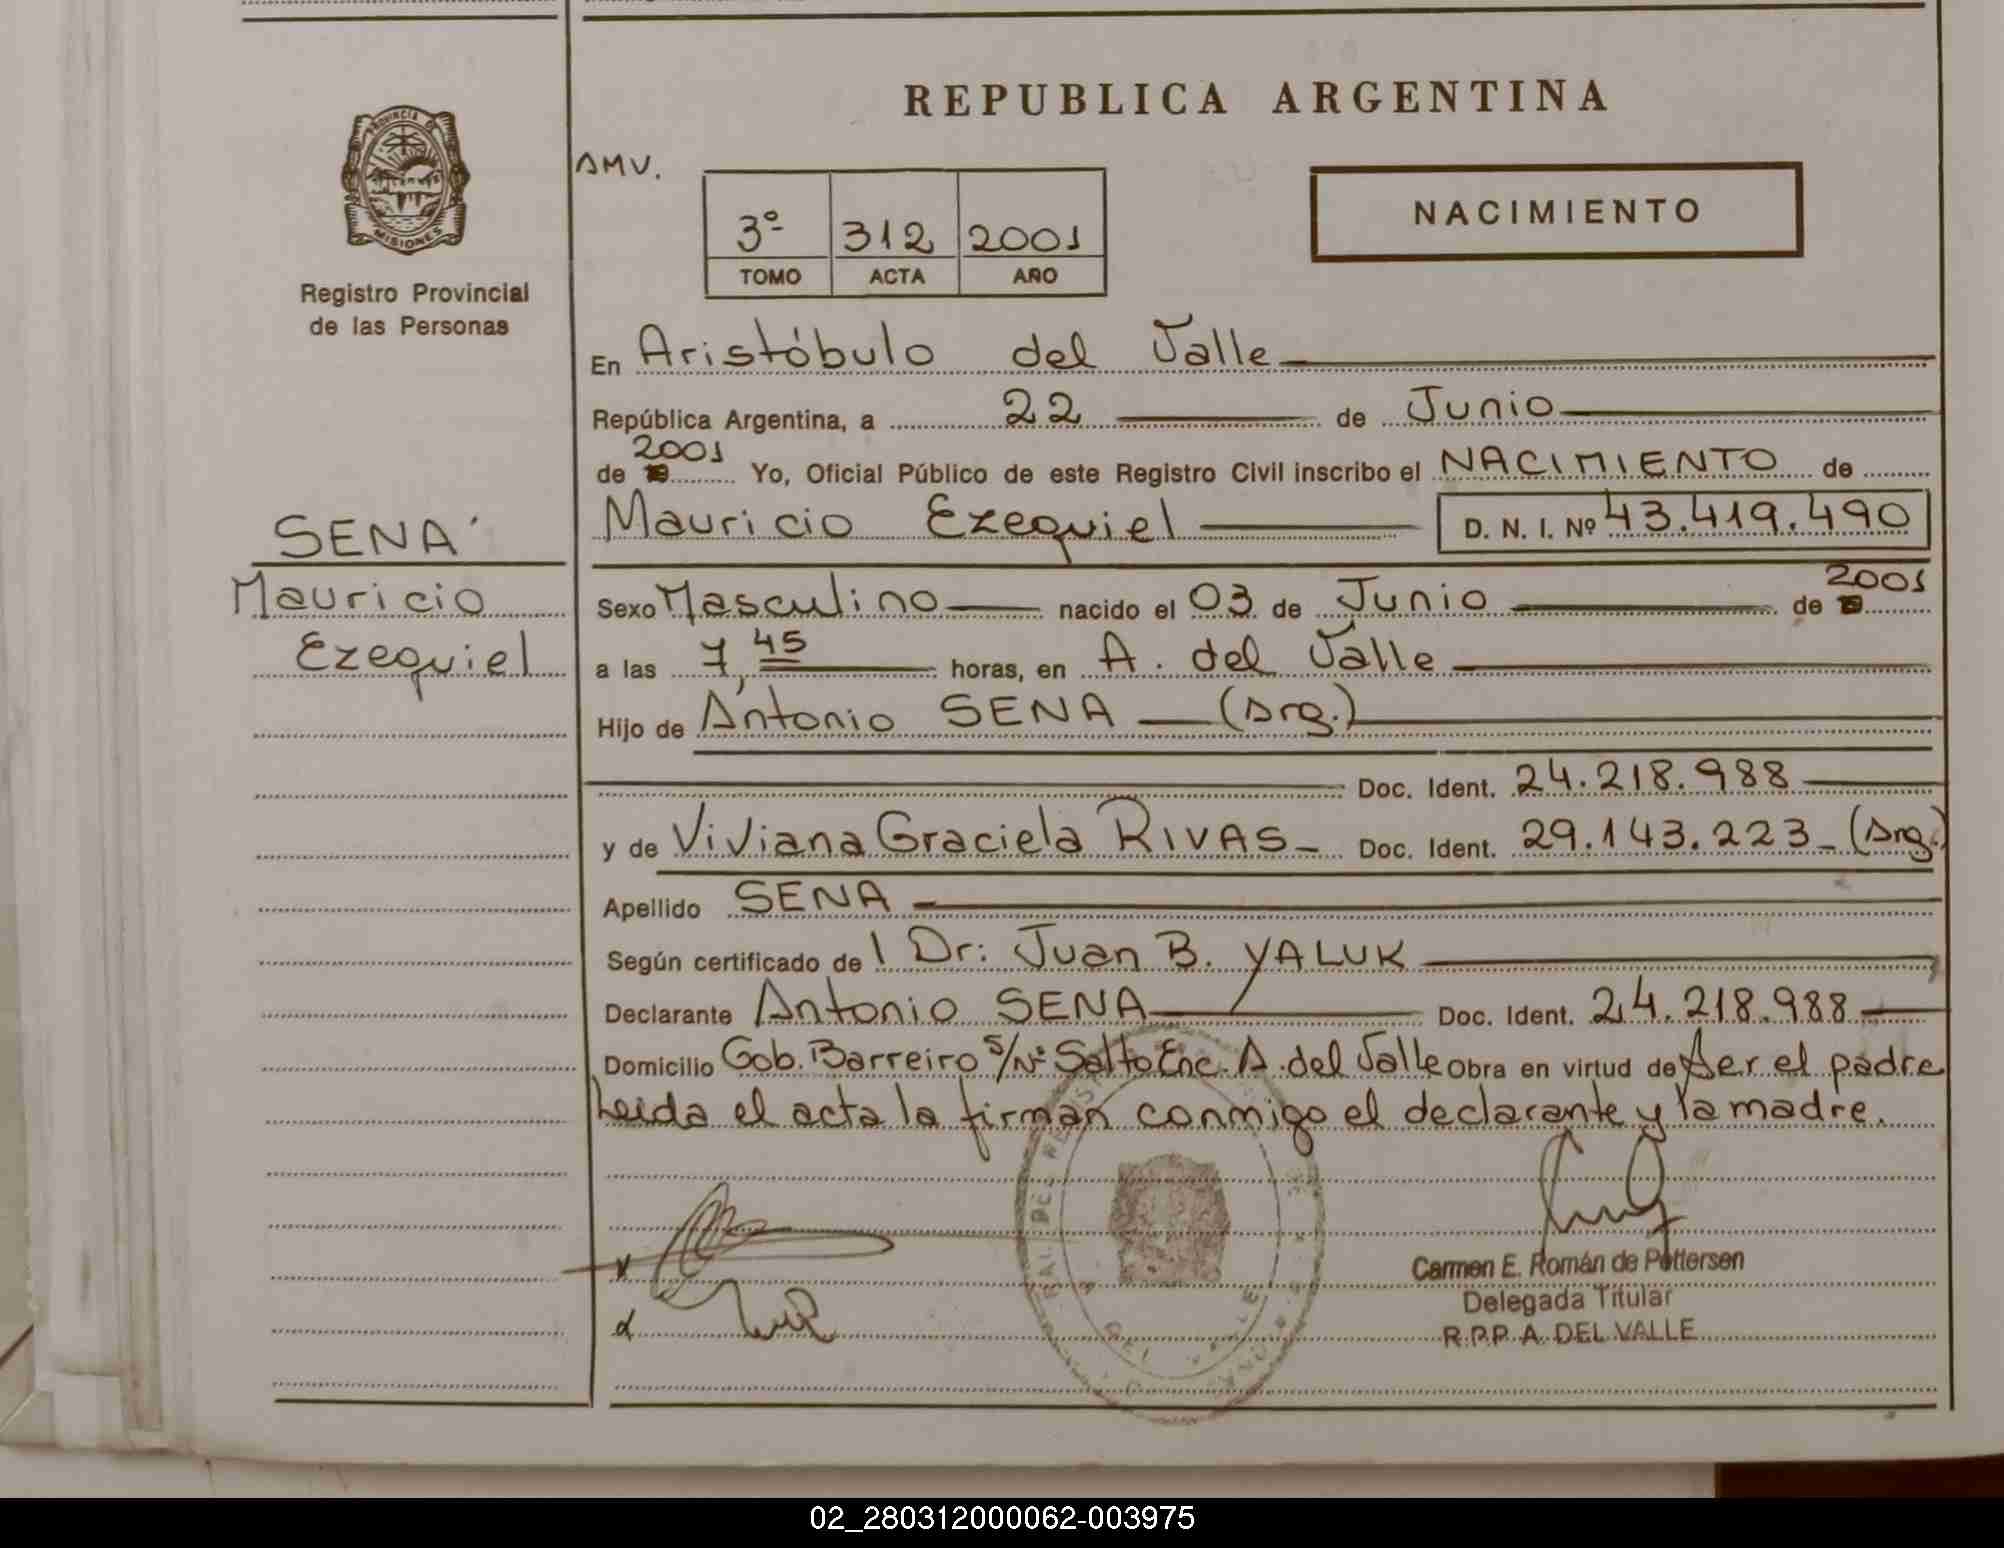 REPUBLICA ARGENTINA
PROVINCIA DE
MISIONES
Registro Provincial
de las Personas
AMV.
3º 312 2001
TOMO ACTA AÑO
NACIMIENTO
En Aristóbulo del Valle
República Argentina, a 22 de Junio
2001
de 19 Yo, Oficial Público de este Registro Civil inscribo el NACIMIENTO de
SENA
Mauricio
Ezequiel
Mauricio Ezequiel D. N. I. Nº 43.419.490
2001
Sexo Masculino nacido el 03 de Junio de 19
a las 7,45 horas, en A. del Valle
Hijo de Antonio SENA (Arg.)
Doc. Ident. 24.218.988
y de Viviana Graciela RIVAS Doc. Ident. 29.143.223 (Arg.)
Apellido SENA
Según certificado de l Dr: Juan B. YALUK
Declarante Antonio SENA Doc. Ident. 24.218.988
Domicilio Gob. Barreiro s/Nº Salto Enc. A. del Valle Obra en virtud de Ser el padre
Leida el acta la firman conmigo el declarante y la madre.
Carmen E. Román de Pettersen
Delegada Titular
R.P.P. A. DEL VALLE
02_280312000062-003975